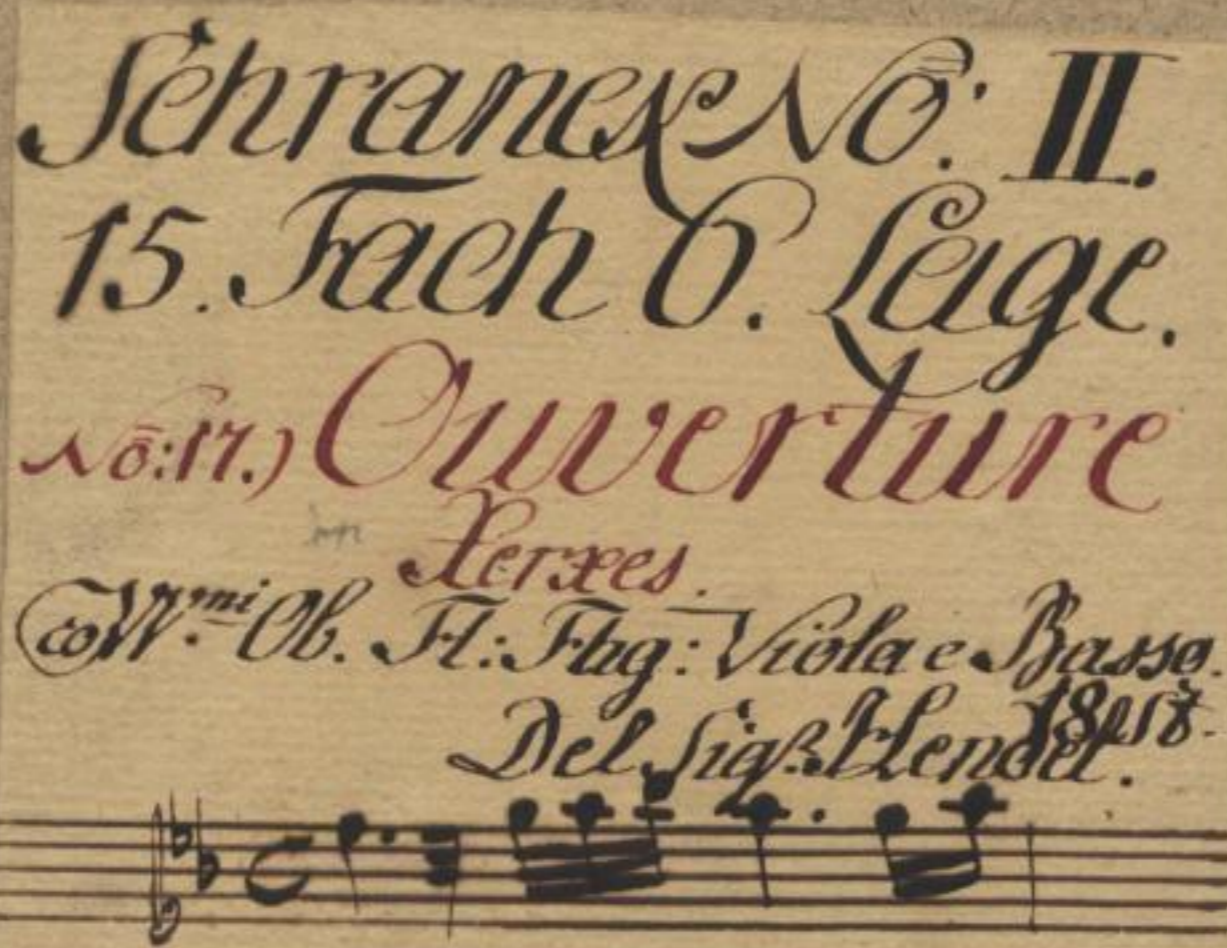 Schranck No: II.
15. Fach 6. Lage.
No: 17.) Ouverture
Xerxes.
co VV.ni Ob. Fl: Fag: Viola e Basso.
Del Sigr. Hendel.